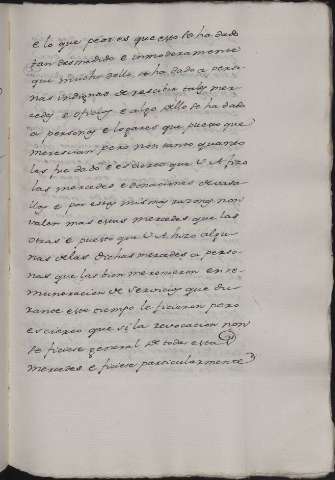 e lo que peor es que esto se ha dado
tan desmedido e inmoderamente
que mucho dello se ha dado a perso-
nas indignas de rescibir tales mer-
cedes e oficios e algo dello se ha dado
a personas e logares que puesto que
merescian pero non tanto quanto
les fue dado e es dicreo que V A fizo
las mercedes e donaciones de vasa-
llos e por estas mismas razones non
valan mas estas mercedes que las
otras e puesto que V A hizo algu-
nas de las dichas mercedes a perso-
nas que las bien merecieron en re-
muneracion de servicios que du-
rante este tiempo le ficieron pero
es cierto que si la revocacion non
se ficiese general de todas estas
mercedes e ficiese particularmente